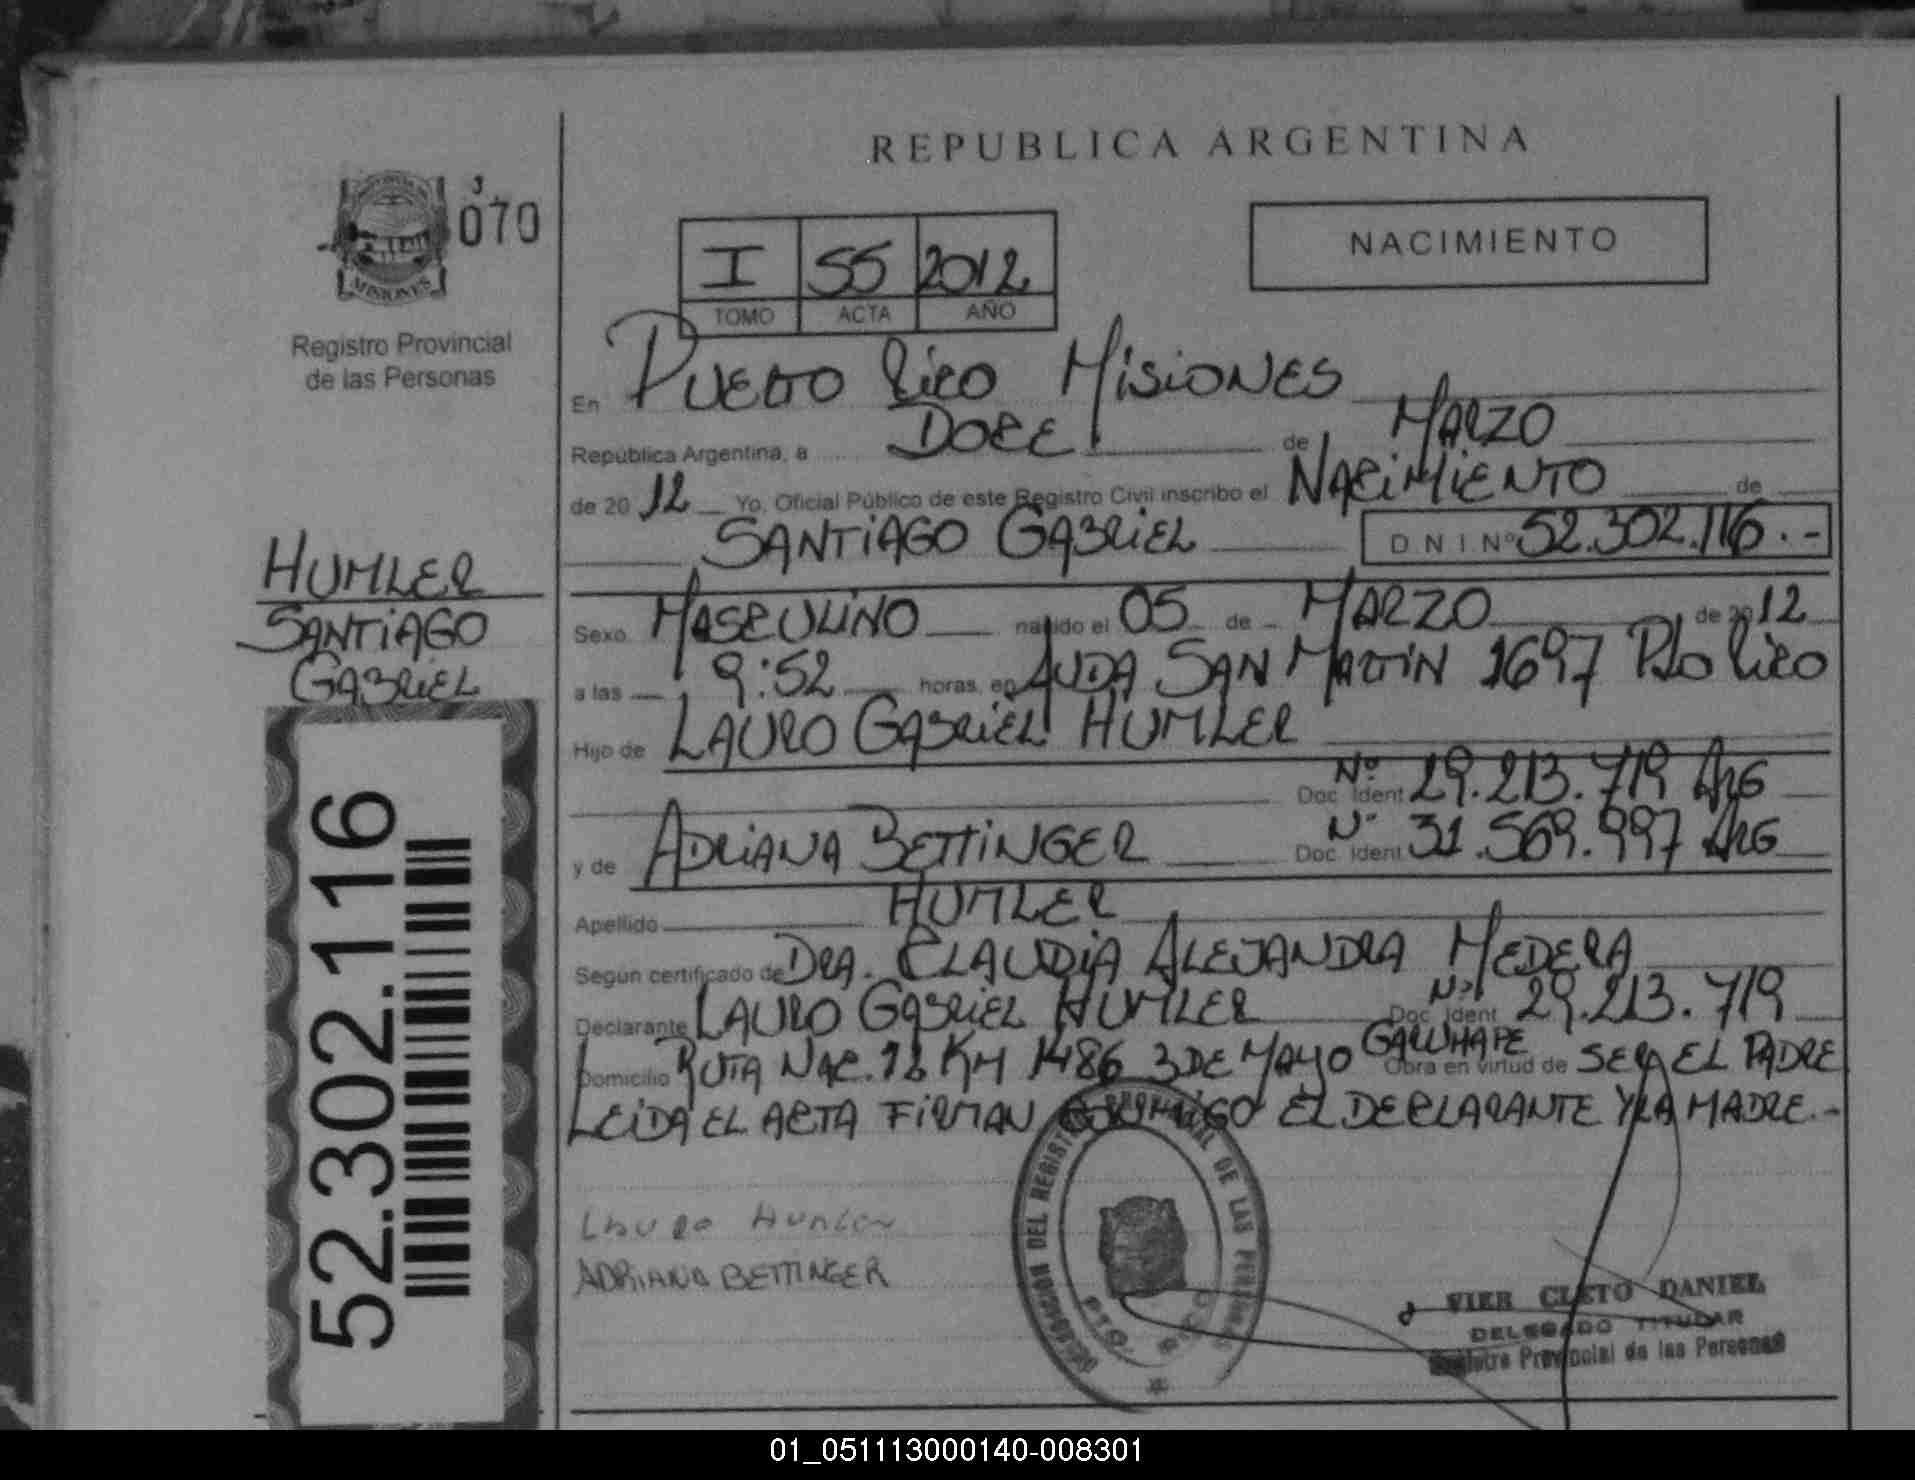 REPUBLICA ARGENTINA
3
070
MISIONES
Registro Provincial
de las Personas
NACIMIENTO
I 55 2012
TOMO ACTA AÑO
En PUERTO RICO MISIONES
República Argentina, a DOCE de MARZO
de 20 12 Yo, Oficial Público de este Registro Civil inscribo el NACIMIENTO de
SANTIAGO GABRIEL D N I Nº 52.302.116.-
HUMLER
SANTIAGO
GABRIEL
Sexo MASCULINO nacido el 05 de MARZO de 2012
a las 9:52 horas, en AVDA SAN MARTIN 1697 PTO RICO
Hijo de LAURO GABRIEL HUMLER
Doc. Ident Nº 29.213.719 ARG
y de ADRIANA BETTINGER Doc. Ident Nº 31.569.997 ARG
Apellido HUMLER
Según certificado de DRA. CLAUDIA ALEJANDRA MEDERA
Declarante LAURO GABRIEL HUMLER Doc. Ident Nº 29.213.719
Domicilio RUTA NAC. 12 KM 1486 3 DE MAYO GARUHAPE Obra en virtud de SER EL PADRE
LEIDA EL ACTA FIRMAN CONMIGO EL DECLARANTE Y LA MADRE.-
LAURO HUMLER
ADRIANA BETTINGER
DELEGACION DEL REGISTRO PROVINCIAL DE LAS PERSONAS
PTO. RICO
VIER CLETO DANIEL
DELEGADO TITULAR
Registro Provincial de las Personas
52.302.116
01_051113000140-008301